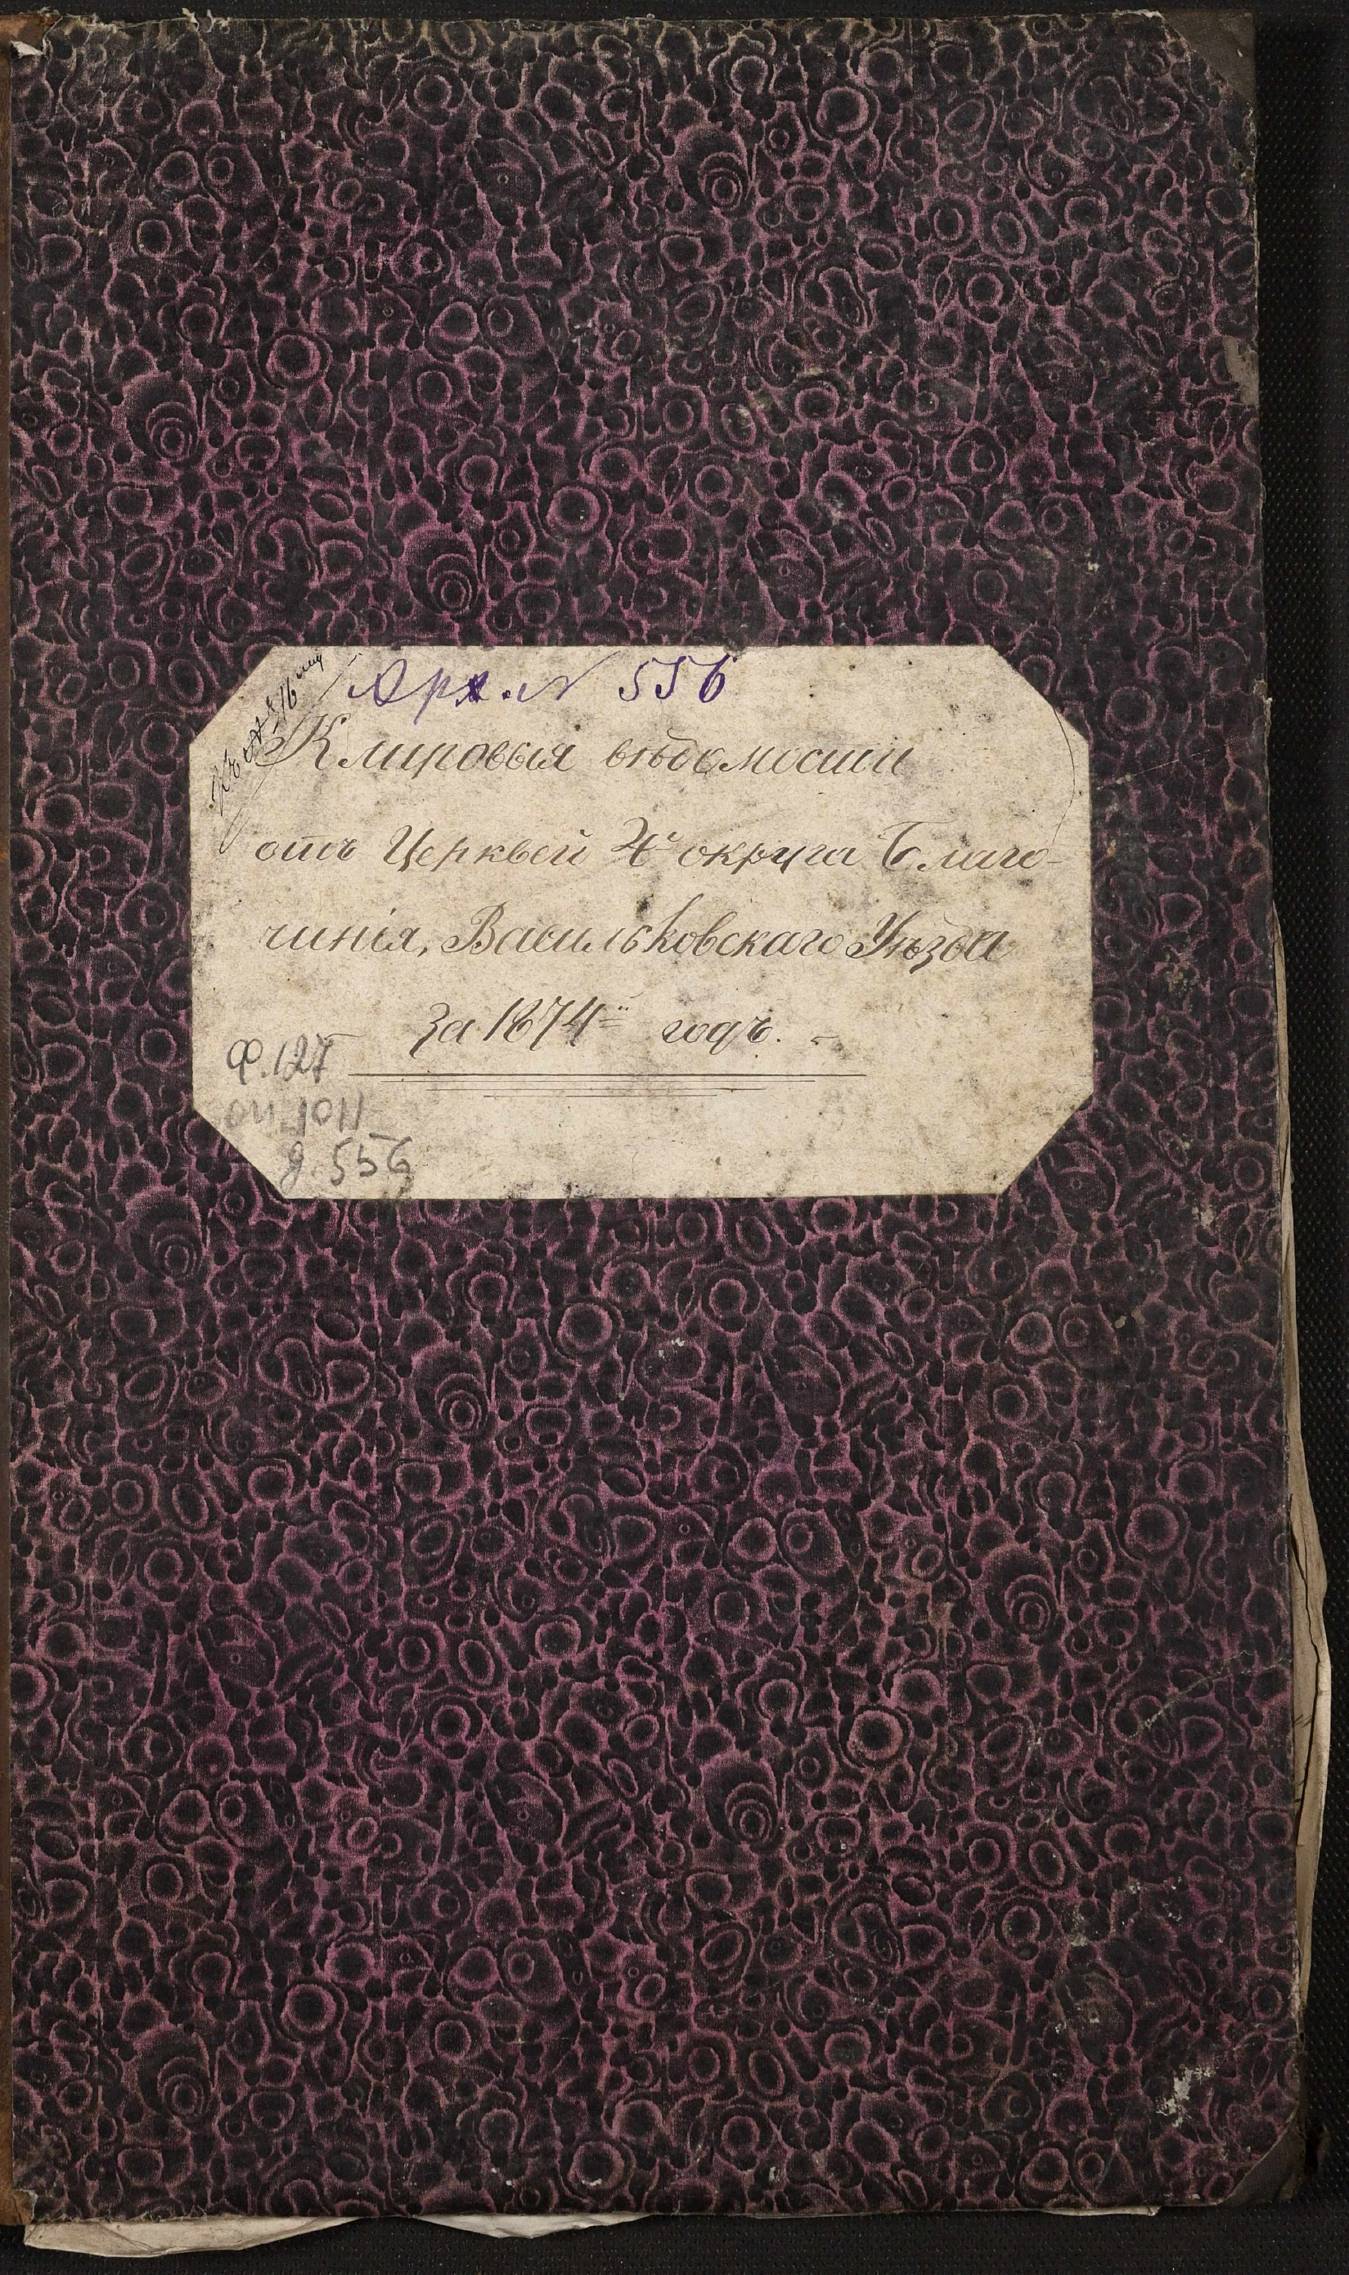 Арх. № 556
Клировыя вѣдомости
отъ Церквей 4º округа Благо-
чинія, Васильковскаго Уѣзда
за 1874й годъ.
Ф. 127
оп. 1011
д. 556